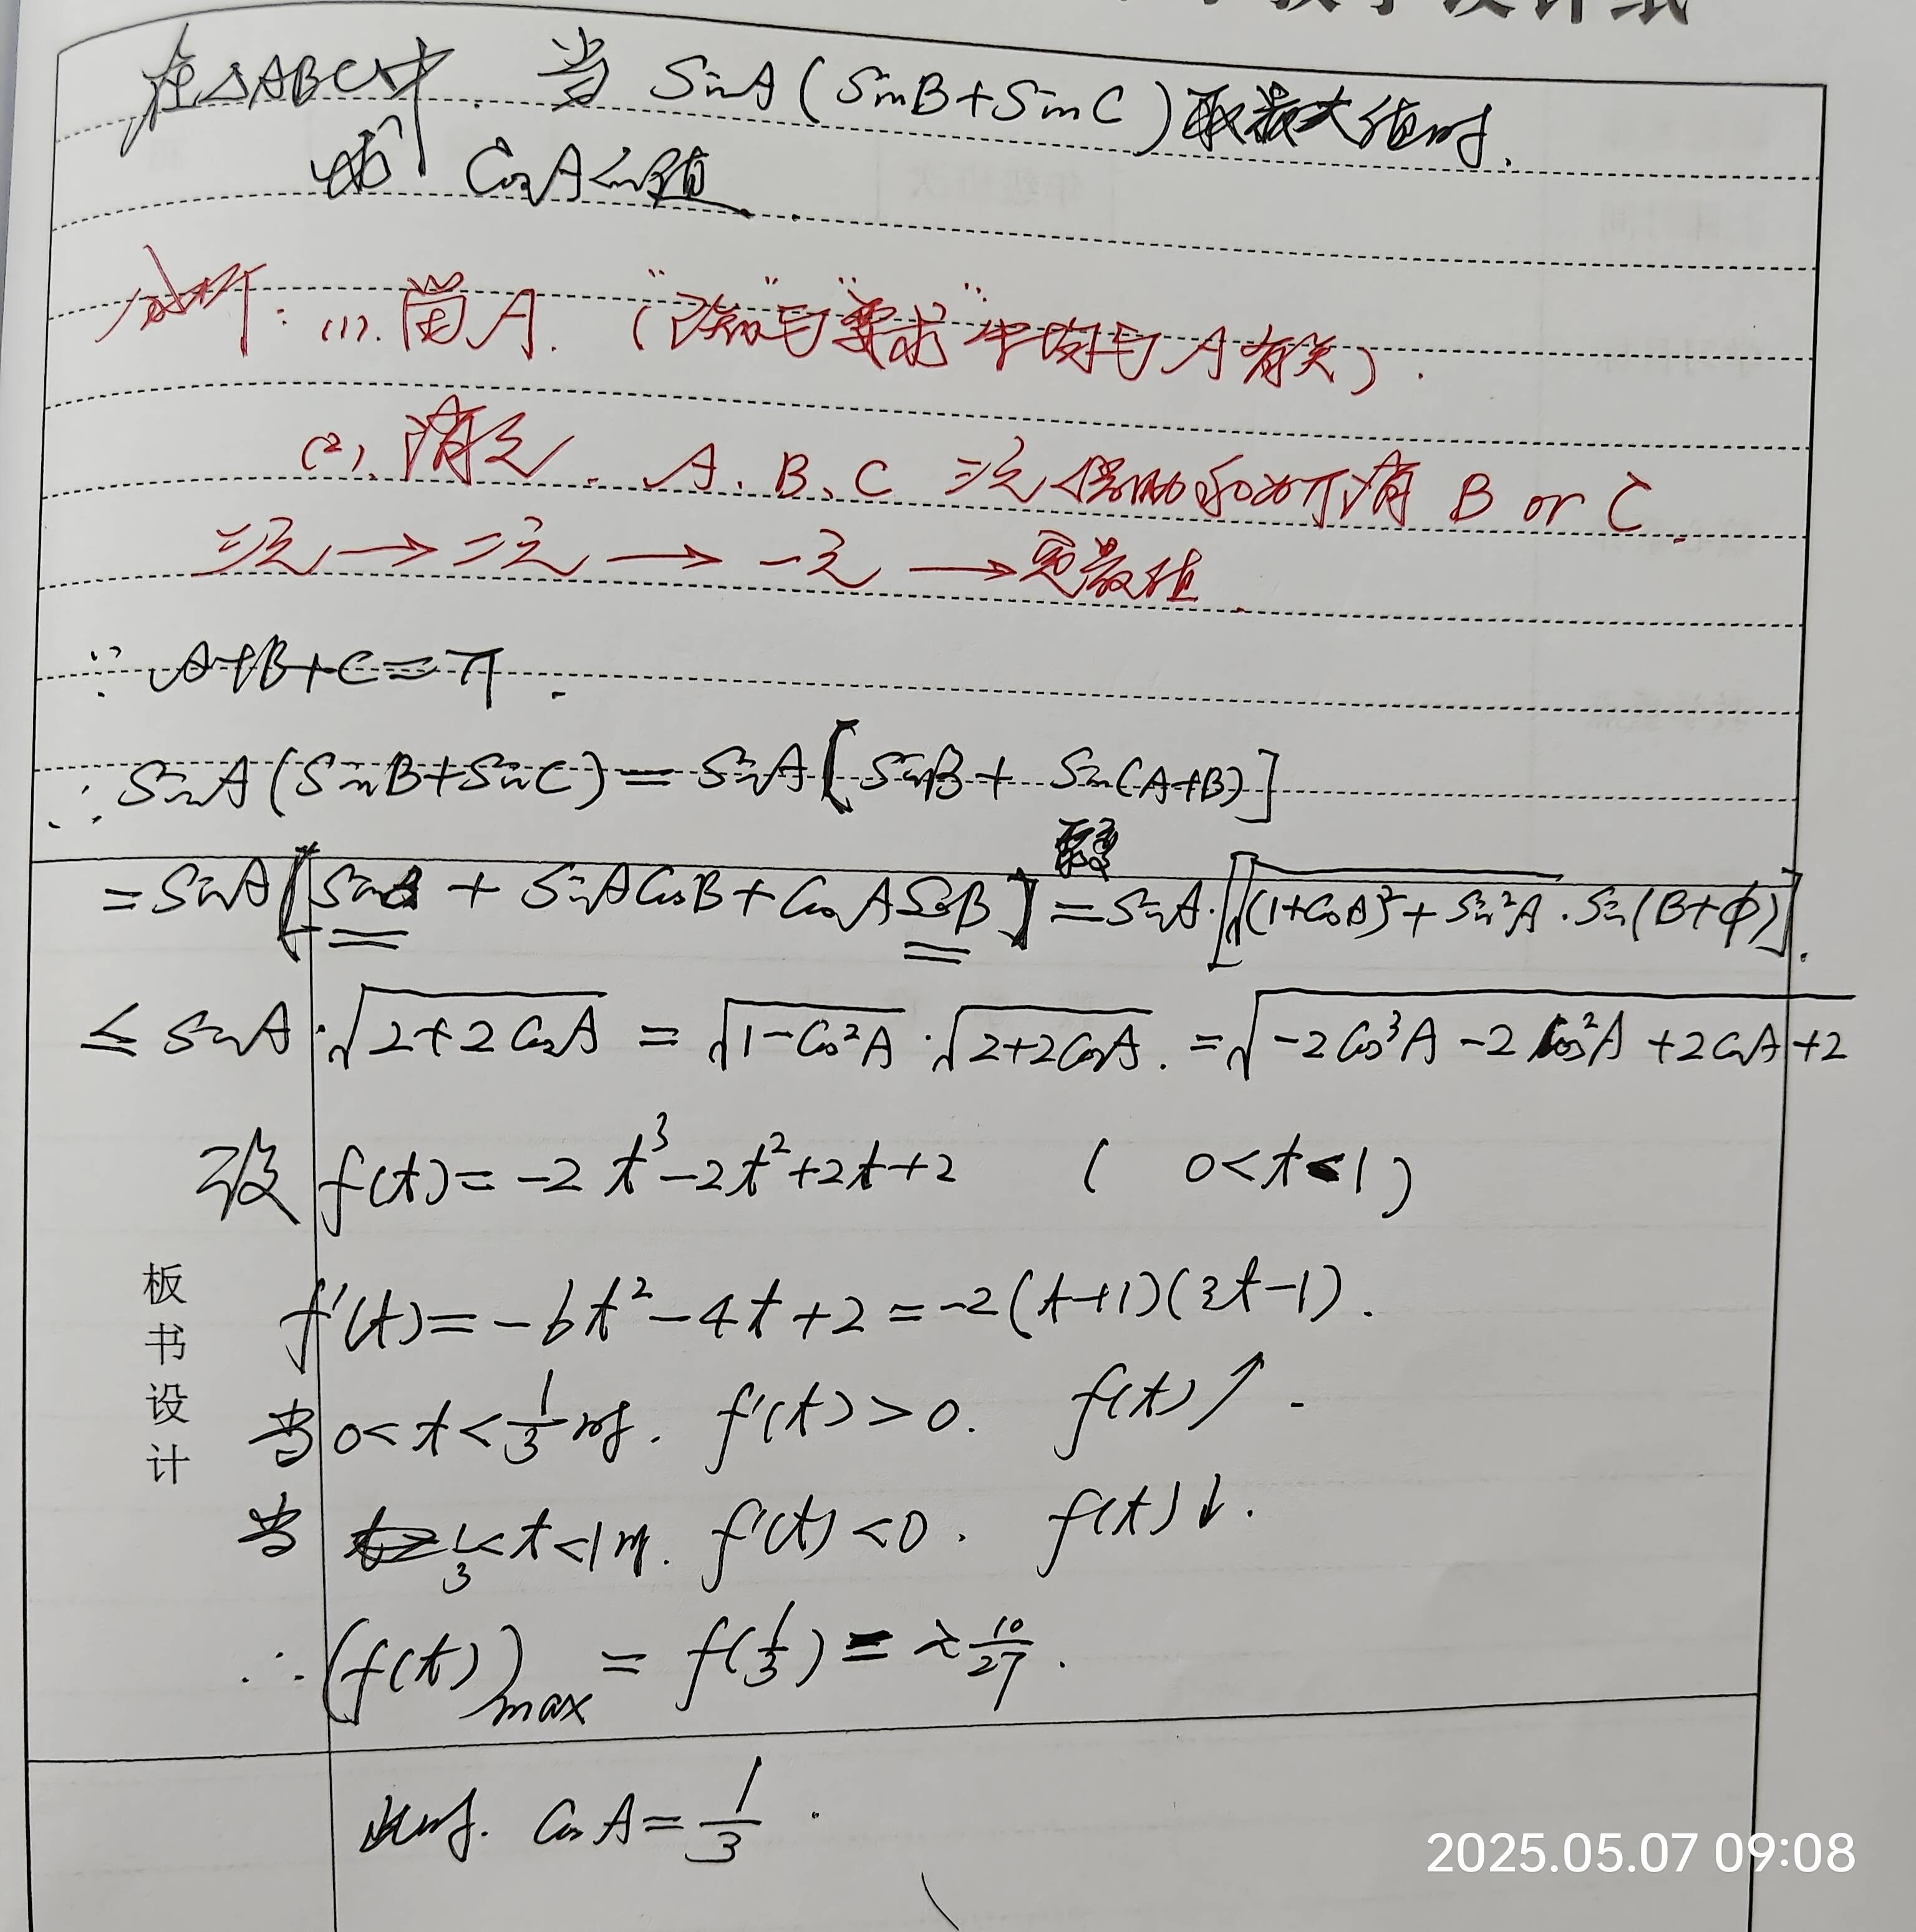 在△ABC中. 当 SinA(SinB+SinC)取最大值时.
求 CosA的值.
分析: (1). 留A. ("已知"与"要求"中均与A有关).
(2). 消元. A、B、C 三元 借助和为π消 B or C.
三元 → 二元 → 一元 → 定最值.
∵ A+B+C=π.
∴ SinA(SinB+SinC)=SinA[SinB+Sin(A+B)]
=SinA[SinB+SinACosB+CosASinB]=SinA·[√((1+CosA)²+Sin²A)·Sin(B+φ)].
≤ SinA·√(2+2CosA) = √(1-Cos²A)·√(2+2CosA). = √(-2Cos³A-2Cos²A+2CosA+2)
设 f(t)=-2t³-2t²+2t+2 ( 0<t<1 )
f'(t)=-6t²-4t+2=-2(t+1)(3t-1).
当 0<t<1/3 时. f'(t)>0. f(t)↑.
当 1/3<t<1时. f'(t)<0. f(t)↓.
∴ (f(t))max = f(1/3) = 2 10/27.
此时. CosA=1/3.
板书设计
2025.05.07 09:08